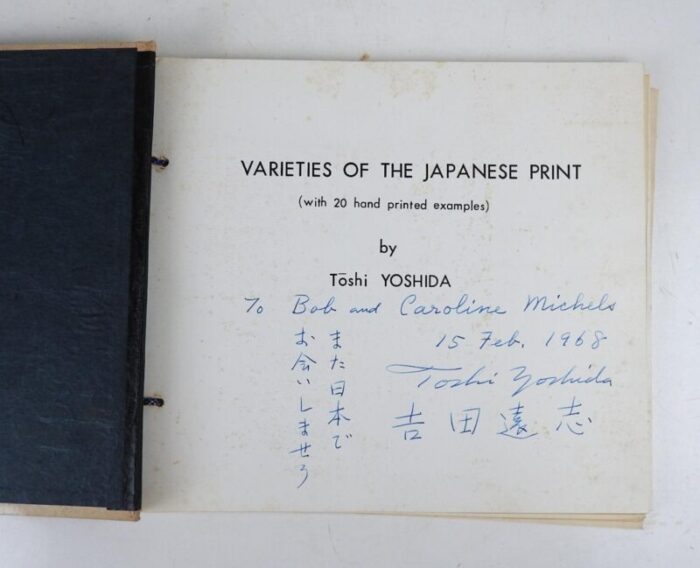 VARIETIES OF THE JAPANESE PRINT
(with 20 hand printed examples)
by
Tōshi YOSHIDA
To Bob and Caroline Michels
15 Feb. 1968
Toshi Yoshida
吉田遠志
また日本で
お会いしませう